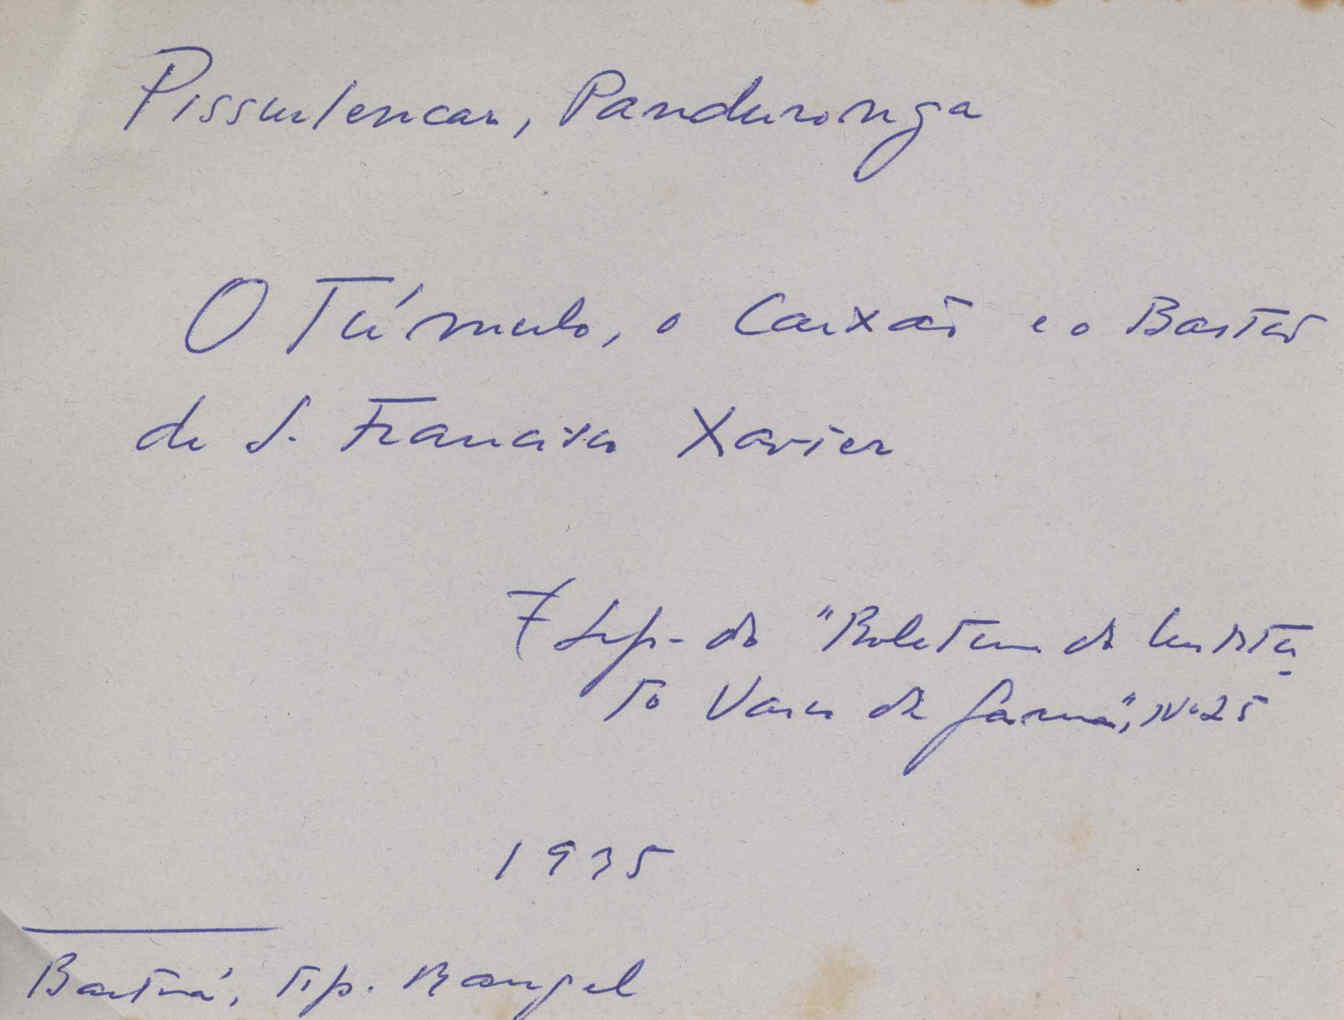 Pissurlencar, Panduronga
O Túmulo, o Caixão e o Bastão
de S. Francisco Xavier
7 Sep. do "Boletim do Institu-
to Vasco da Gama", Nº 25
1935
Bastorá, Tip. Rangel